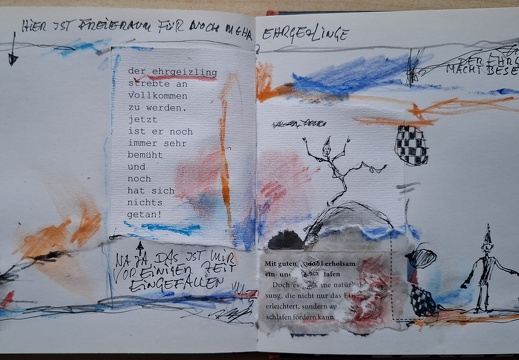 HIER IST FREIERAUM FÜR NOCH MEHR EHRGEIZLINGE
der ehrgeizling
strebte an
vollkommen
zu werden.
jetzt
ist er noch
immer sehr
bemüht
und
noch
hat sich
nichts
getan!
NAJA, DAS IST MIR
VOR EINIGER ZEIT
EINGEFALLEN
DER EHRG
MACHT BESE
Mit guten erholsam
ein- und lafen
Doch es ne natür
sung, die nicht nur das
erleichtert, sondern
schlafen fördern kann.